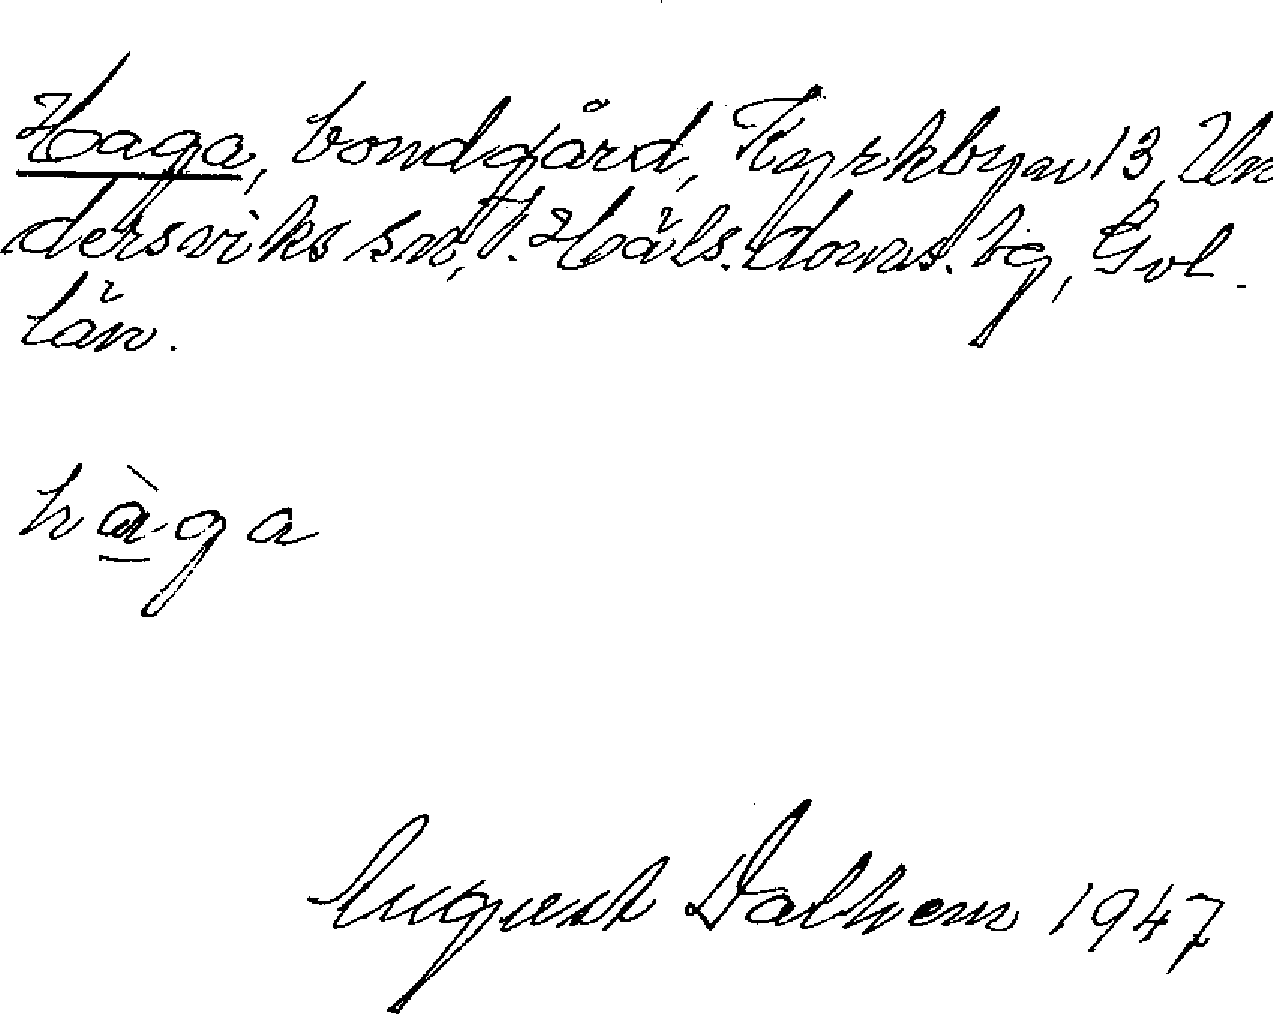 Haga, bondgård, Kyrkbyn 13, Un
dersviks sn, V. Häls. doms. bg, Gvl.
län.
hàga
August Dalhem 1947